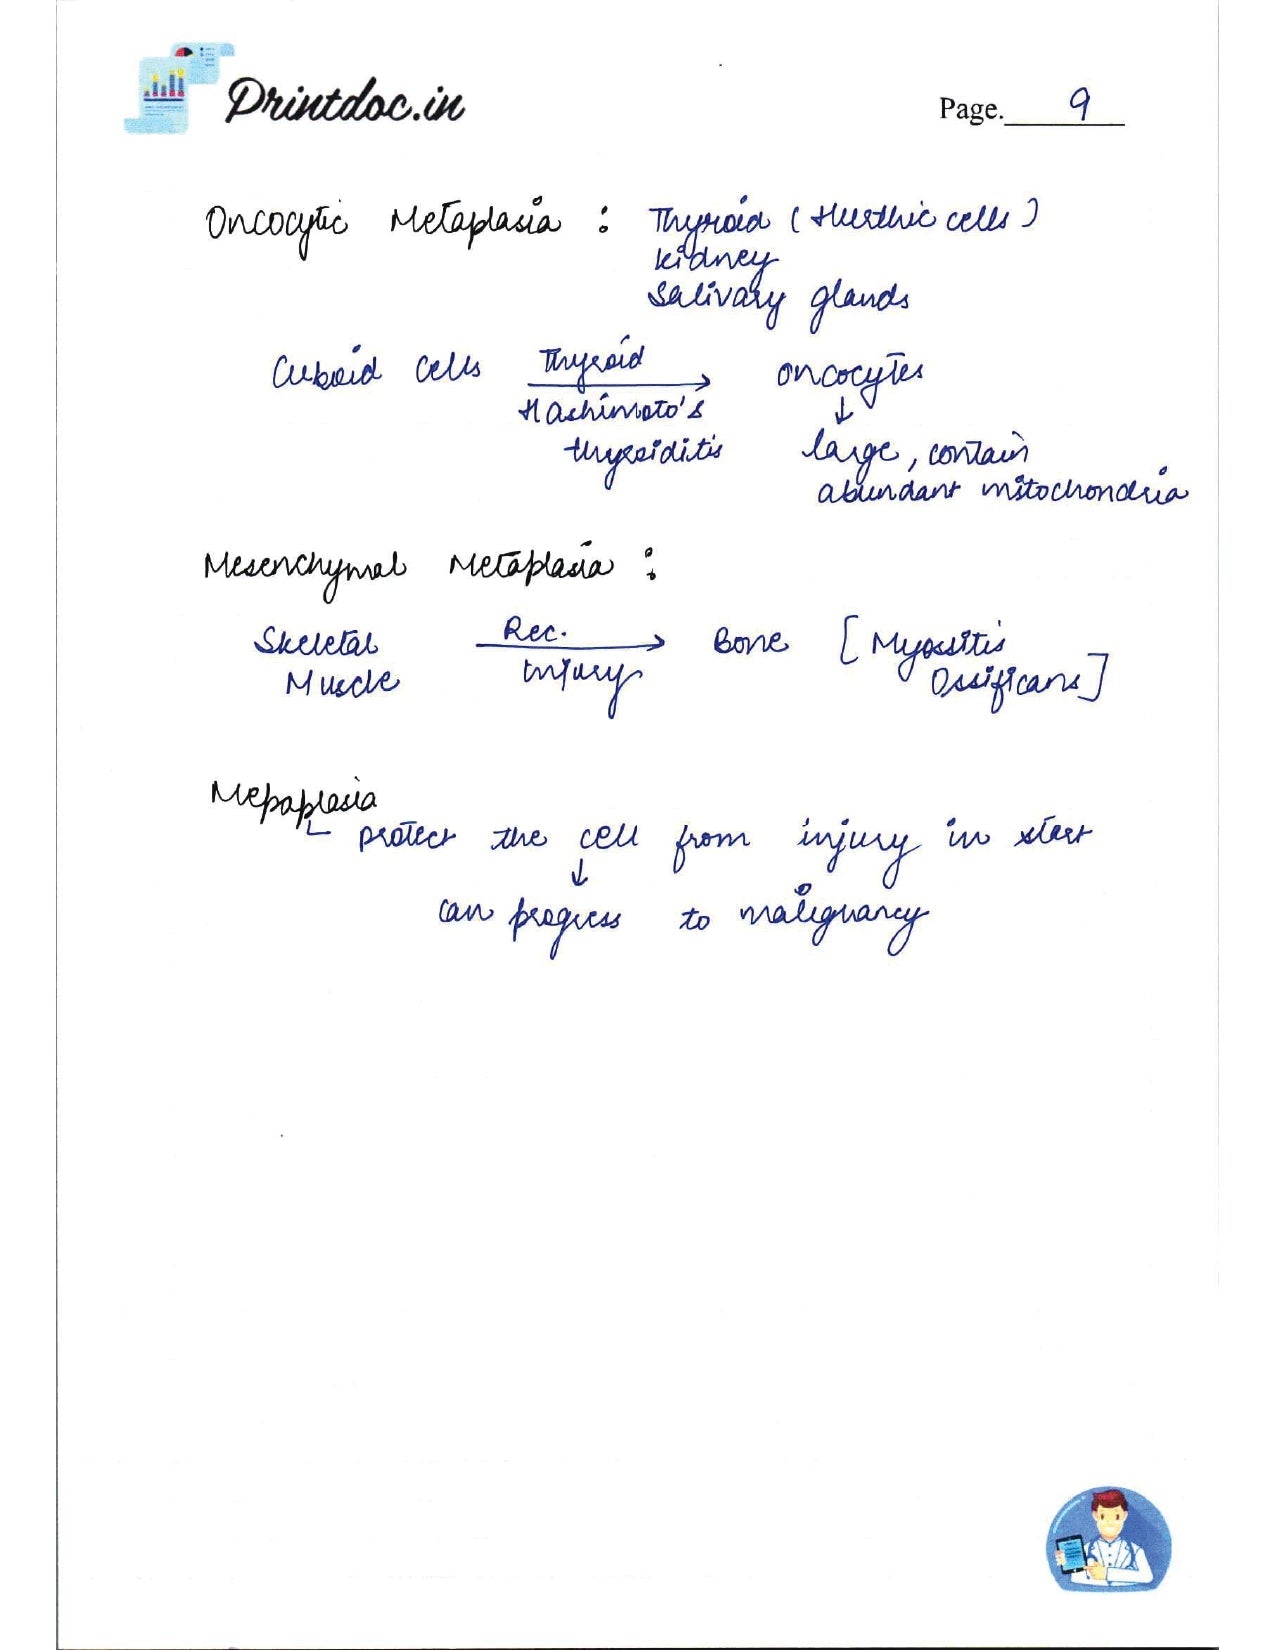 Printdoc.in
Page. 9
Oncocytic Metaplasia : Thyroid (Hurthic cells)
kidney
Salivary glands
Cuboid cells Thyroid → oncocytes
Hashimoto's ↓
thyroiditis large, contain
abundant mitochondria
Mesenchymal Metaplasia :
Skeletal Rec. → Bone [Myositis
Muscle injury Ossificans]
Mepaplasia
protect the cell from injury in start
↓
can progress to malignancy